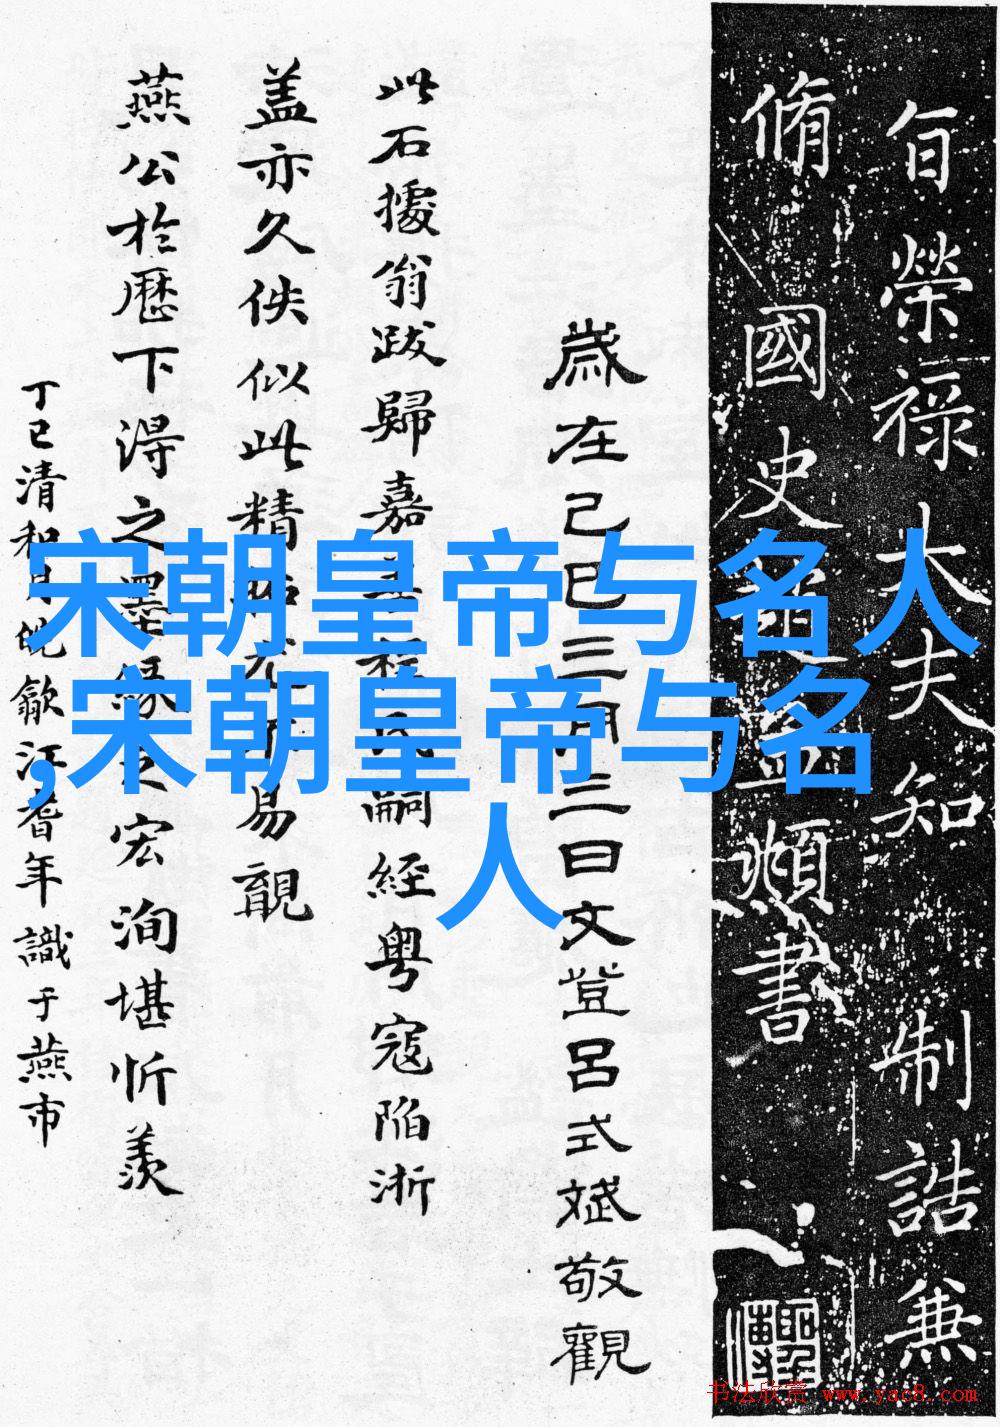 旨榮祿大夫知制誥兼
脩國史
頫書
歲在己巳三月三日文登呂式斌敬觀
此石據翁跋歸嘉
經粵寇陷浙
蓋亦久佚似此精
易覯
燕公於歷下淂之墨緣之宏洵堪忻羨
丁巳清和月
歙江耆年識于燕市
宋朝皇帝与名人
,宋朝皇帝与名
人
书法欣赏 www.yac8.com